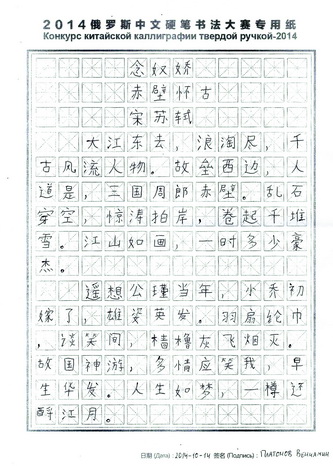 2014俄罗斯中文硬笔书法大赛专用纸
Конкурс китайской каллиграфии твердой ручкой-2014
念奴娇
赤壁怀古
宋苏轼
大江东去，浪淘尽，千
古风流人物。故垒西边，人
道是，三国周郎赤壁。乱石
穿空，惊涛拍岸，卷起千堆
雪。江山如画，一时多少豪
杰。
遥想公瑾当年，小乔初
嫁了，雄姿英发。羽扇纶巾
，谈笑间，樯橹灰飞烟灭。
故国神游，多情应笑我，早
生华发。人生如梦，一樽还
酹江月。
日期 (Дата) : 2014-10-14 签名 (Подпись) : Платонов Вениамин